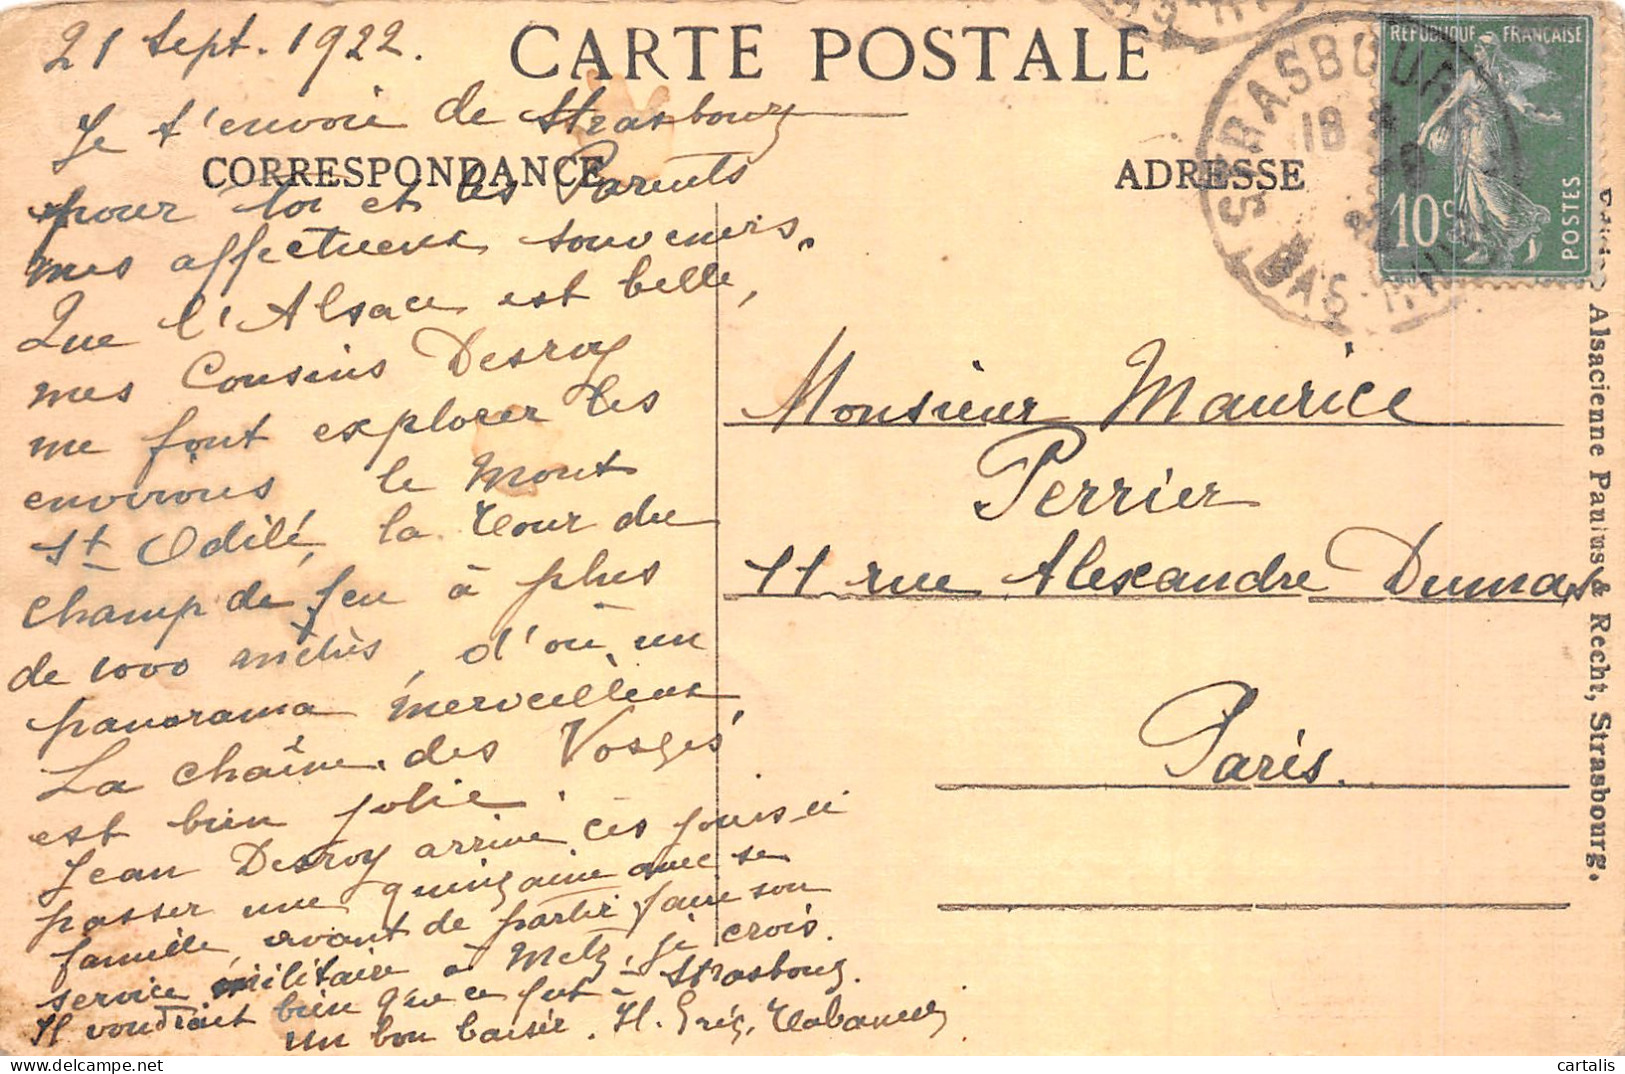 21 Sept. 1922.
CARTE POSTALE
Je t'envoie de Strasbourg
CORRESPONDANCE
pour toi et les Parents
mes affectueux souvenirs.
Que l'Alsace est belle,
mes Cousins Desroy
me font explorer les
environs, le Mont
St Odile, la Tour du
champ de feu à plus
de 1000 mètres, d'où un
panorama merveilleux.
La chaîne des Vosges
est bien jolie.
Jean Desroy arrive ces jours-ci
passer une quinzaine avec sa
famille, avant de partir faire son
service militaire à Metz, je crois.
Il voudrait bien que ce fut à Strasbourg.
Un bon baiser. H.
ADRESSE
STRASBOURG
18
BAS-RHIN
REPUBLIQUE FRANÇAISE
10c
POSTES
Monsieur Maurice
Perrier
11 rue Alexandre Dumas
Paris.
Alsacienne Paulus & Recht, Strasbourg.
cartalis